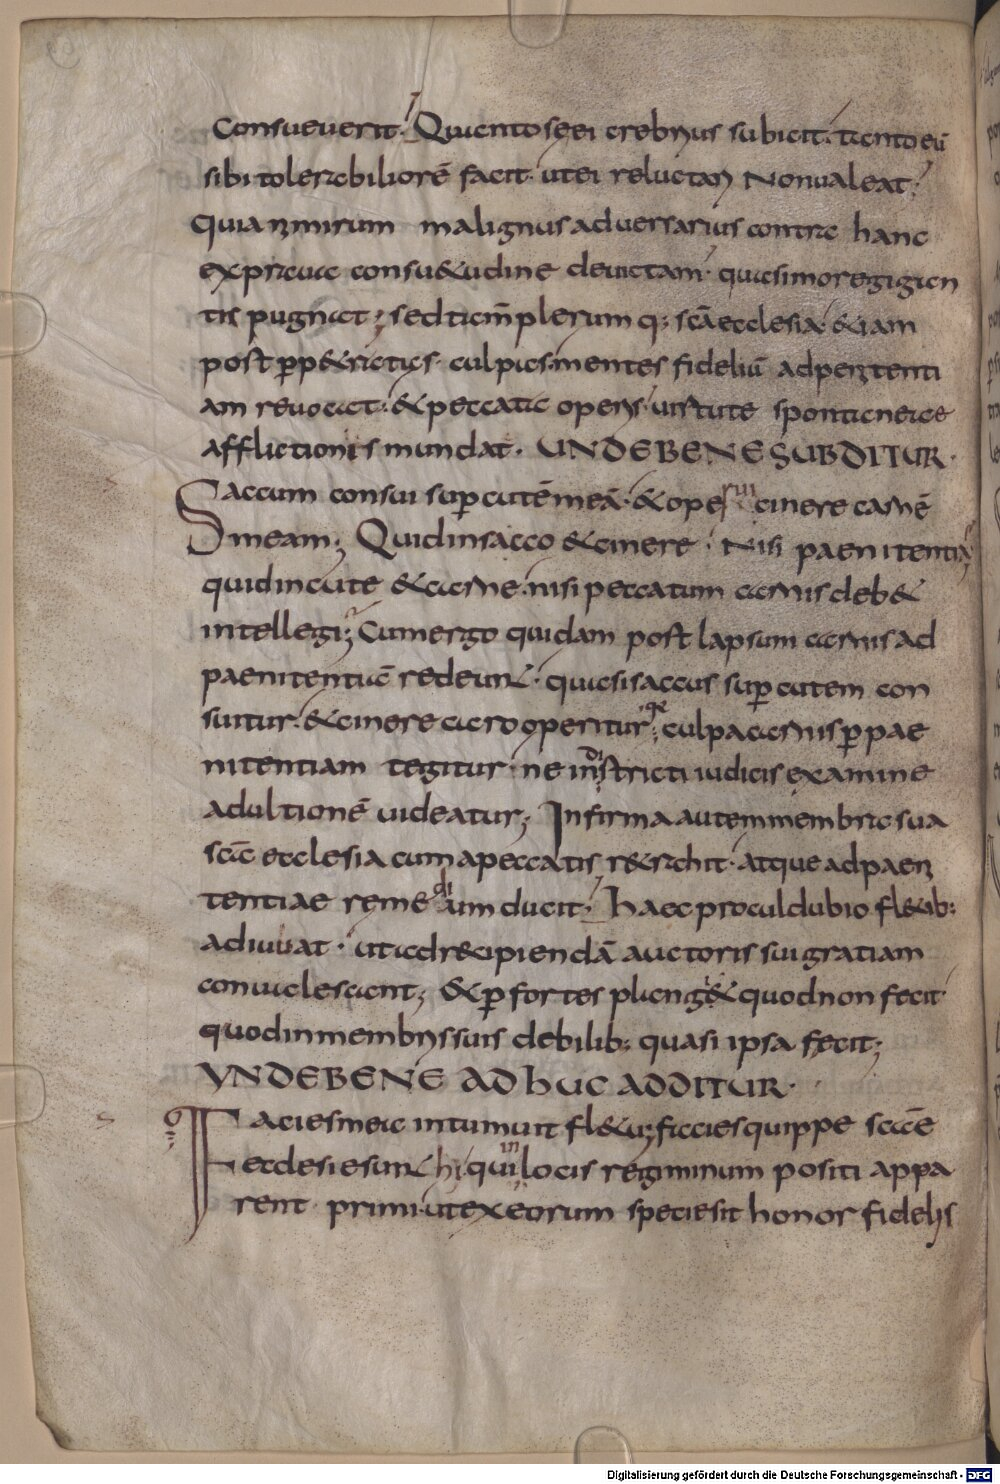 consueuerit; Quanto se ei crebrius subicit. tanto eū
sibi tolerabiliorē facit. ut ei reluctari non ualeat;
Quia nimirum malignus aduersarius contra hanc
ex praua consu&udine deuictam. quasi more gigan
tis pugnat; sed tam̄ plerumq; sc̄a ecclesia &iam
post ꝑp&ratas culpas. mentes fideliū ad peniten ti
am reuocat. & peccata operis. uirtute spontaneae
afflictionis mundat. UNDE BENE SUBDITUR.
Saccum consui suꝑ cutē meā. & operui cinere carnē
meam; Quid in sacco & cinere. Nisi paenitentia,
quid in cute & carne. nisi peccatum carnis deb&
intellegi; Cum ergo quidam post lapsum carnis ad
paenitentiā redeunt. quasi saccus suꝑ cutem con
suitur. & cinere caro operitur; quia culpa carnis ꝑ pae
nitentiam tegitur. ne in districti iudicis examine
ad ultionē uideatur; Infirma autem membra sua
sc̄a ecclesia cum a peccatis r&rahit. atque ad paeni
tentiae remedium ducit; Haec procul dubio fl&ib:
adiuuat. ut ad recipiendā auctoris sui gratiam
conualescant; & ꝑ fortes plang& quod non fecit
quod in membris suis debilib: quasi ipsa fecit;
VNDE BENE ADHUC ADDITUR.
Facies mea intumuit fl&u; facies quippe sc̄ae
ecclesie sunt hi, qui in locis regiminum positi appa
rent primi. ut ex eorum specie sit honor fidelis
Digitalisierung gefördert durch die Deutsche Forschungsgemeinschaft - DFG